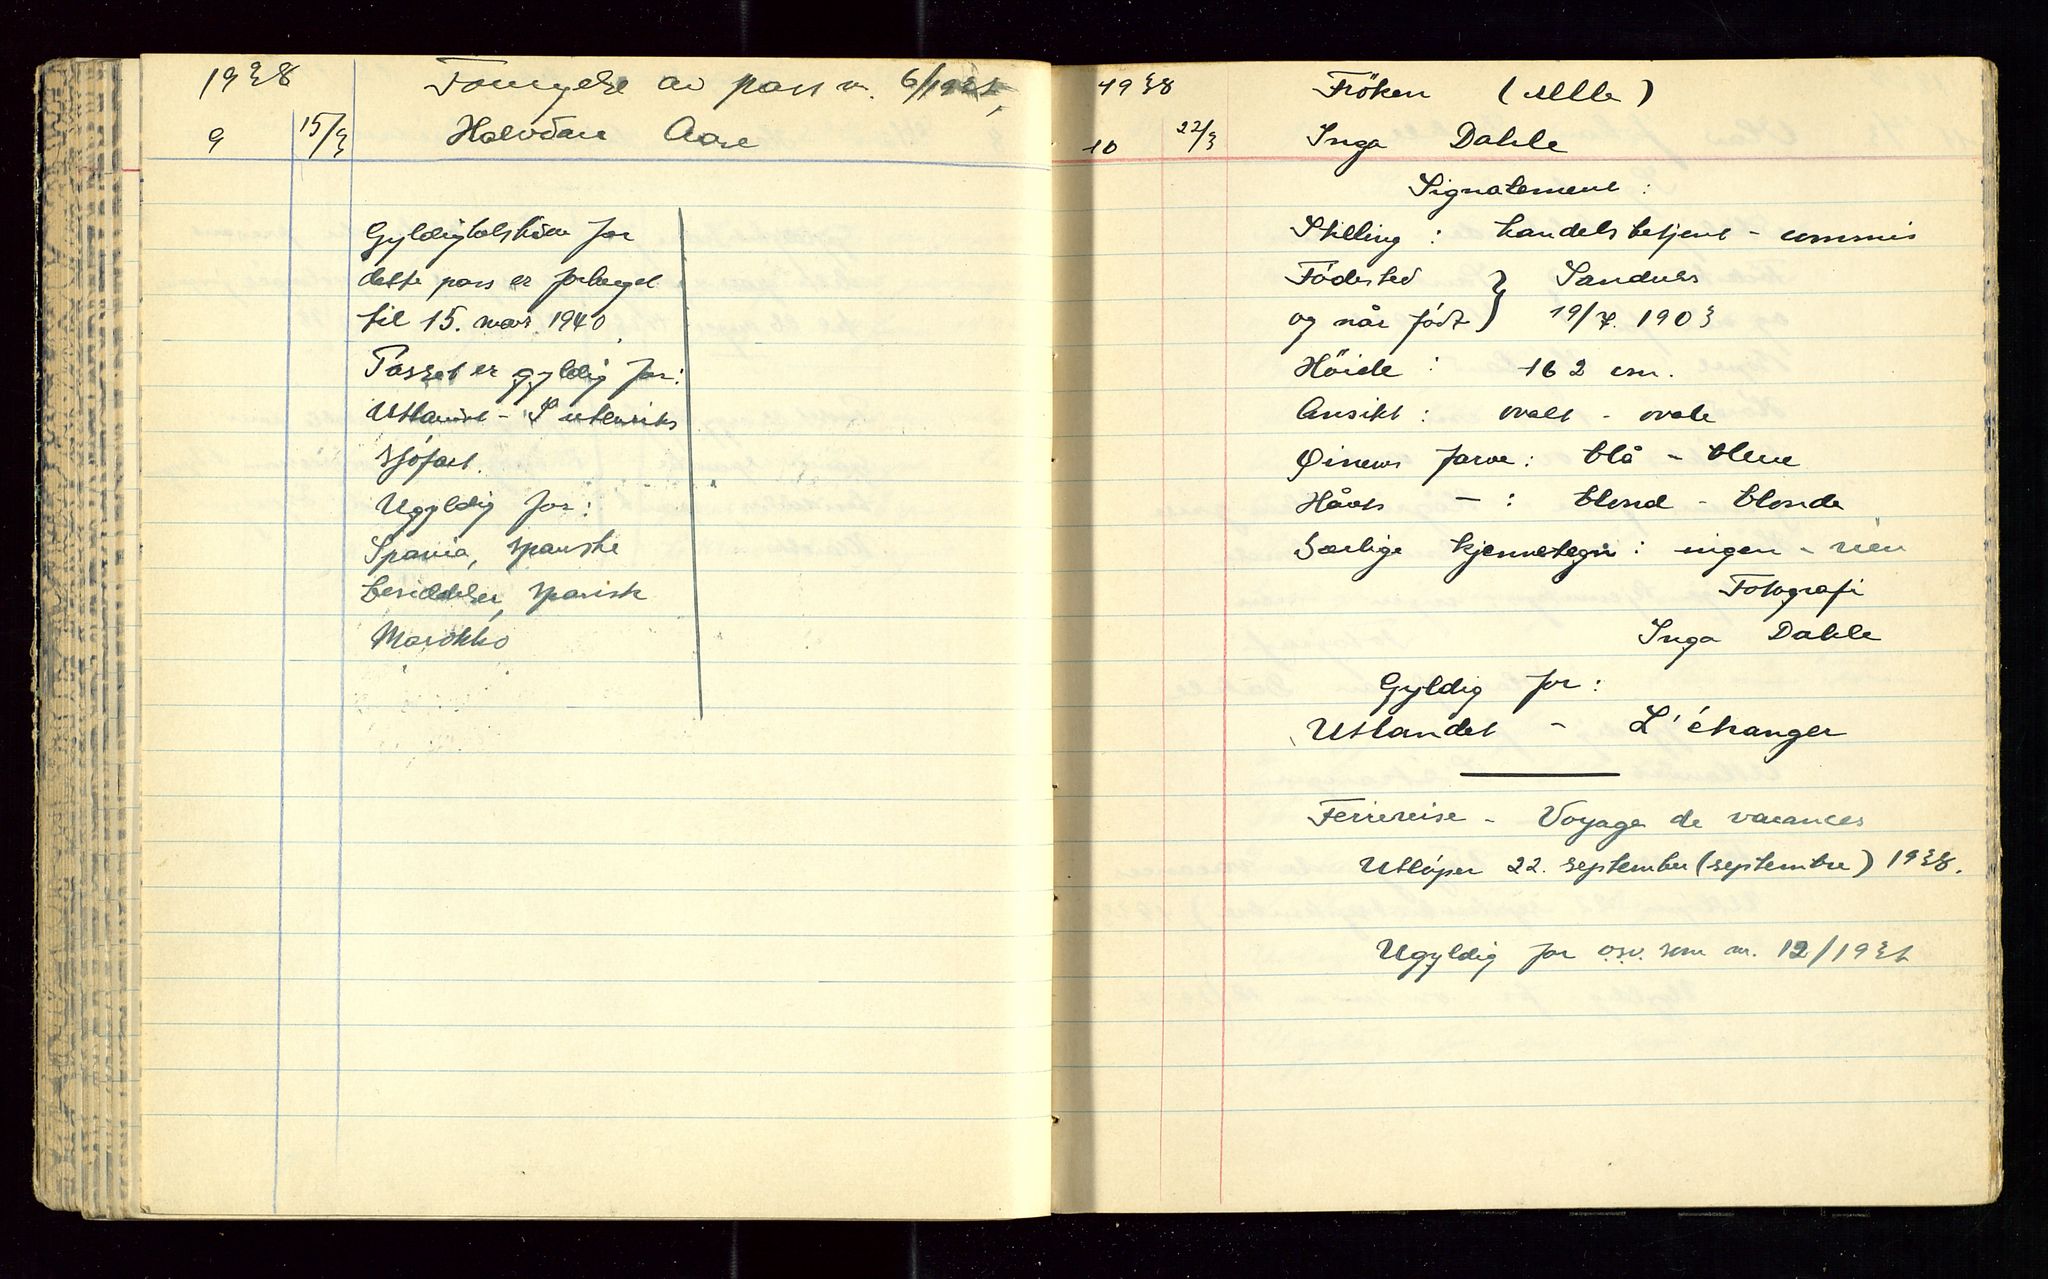 1938 Fornyelse av pass nr. 6/193
9 15/3 Halvdan Aase
Gyldighetstiden for
dette pass er forlenget
til 15. mars 1940.
Passet er gyldig for:
Utlandet - I utenriks
sjøfart.
Ugyldig for:
Spania, spanske
besiddelser, spansk
Marokko
1938 Fröken (Mlle)
10 22/3 Inga Dahle
Signalement:
Stilling: handelsbetjent - commis
Födested } Sandnes
og når født } 19/7. 1903
Höide: 162 cm.
Ansikt: ovalt - ovale
Øinenes farve: blå - bleue
Hårets — : blond - blonde
Særlige kjennetegn: ingen - rien
Fotografi
Inga Dahle
Gyldig for:
Utlandet - L'étranger
Feriereise - Voyage de vacances
Utløper 22. september (septembre) 1938.
Ugyldig for o.s.v. som nr. 12/193